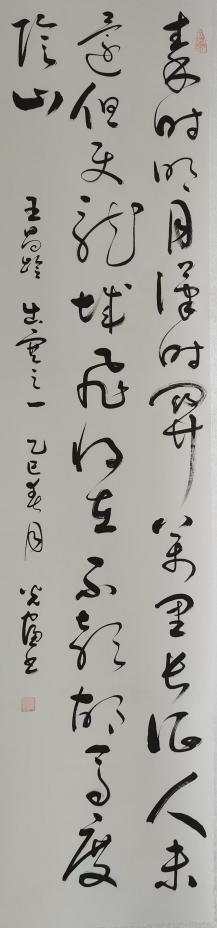 秦时明月汉时关万里长征人未
还但使龙城飞将在不教胡马度
阴山
王昌龄 出塞之一 乙巳春月